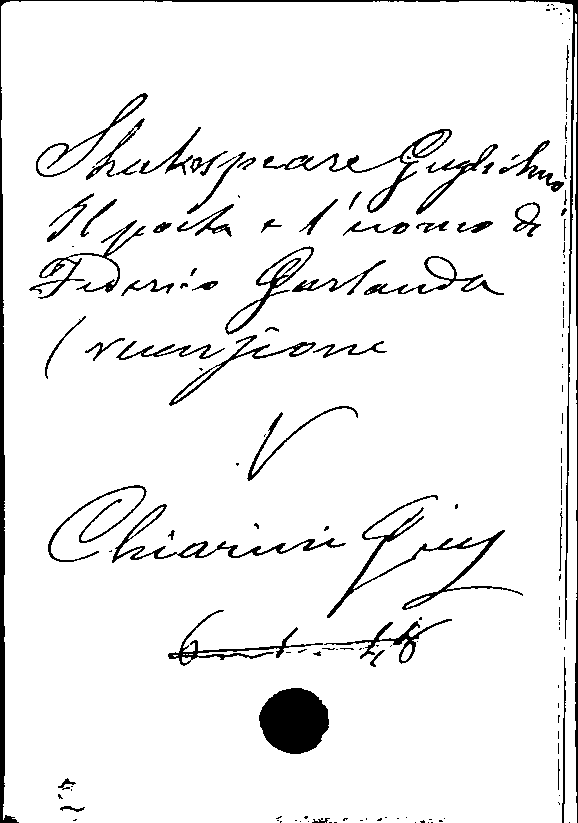 Shakespeare Guglielmo.
Il poeta e l'uomo di
Federico Garlanda
(recensione
V
Chiarini Gius
6. 1. 48